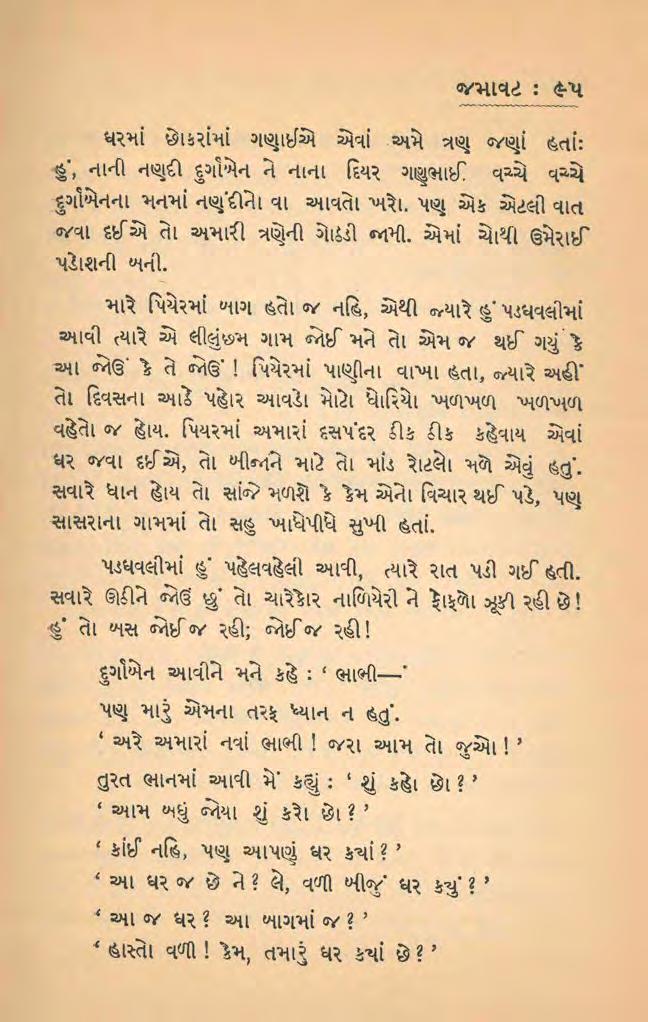 જમાવટ : ૯૫
ઘરમાં છોકરાંમાં ગણાઈએ એવાં અમે ત્રણ જણાં હતાં:
હું, નાની નણદી દુર્ગાબેન ને નાના દિયર ગણુભાઈ. વચ્ચે વચ્ચે
દુર્ગાબેનના મનમાં નણંદીનો વા આવતો ખરો. પણ એક એટલી વાત
જવા દઈએ તો અમારી ત્રણેની ગોઠડી જામી. એમાં ચોથી ઉમેરાઈ
પડોશની બની.
મારે પિયેરમાં બાગ હતો જ નહિ, એથી જ્યારે હું પડધવલીમાં
આવી ત્યારે એ લીલુંછમ ગામ જોઈ મને તો એમ જ થઈ ગયું કે
આ જોઉં કે તે જોઉં ! પિયેરમાં પાણીના વાખા હતા, જ્યારે અહીં
તો દિવસના આઠે પહોર આવડો મોટો ધોરિયો ખળખળ ખળખળ
વહેતો જ હોય. પિયરમાં અમારાં દસપંદર ઠીક ઠીક કહેવાય એવાં
ઘર જવા દઈએ, તો બીજાને માટે તો માંડ રોટલો મળે એવું હતું.
સવારે ધાન હોય તો સાંજે મળશે કે કેમ એનો વિચાર થઈ પડે, પણ
સાસરાના ગામમાં તો સહુ ખાધેપીધે સુખી હતાં.
પડધવલીમાં હું પહેલવહેલી આવી, ત્યારે રાત પડી ગઈ હતી.
સવારે ઊઠીને જોઉં છું તો ચારેકોર નાળિયેરી ને ફોફળો ઝૂકી રહી છે!
હું તો બસ જોઈ જ રહી; જોઈ જ રહી!
દુર્ગાબેન આવીને મને કહે : ‘ ભાભી—’
પણ મારું એમના તરફ ધ્યાન ન હતું.
‘ અરે અમારાં નવાં ભાભી ! જરા આમ તો જુઓ ! ’
તુરત ભાનમાં આવી મેં કહ્યું : ‘ શું કહો છો ? ’
‘ આમ બધું જોયા શું કરો છો ? ’
‘ કાંઈ નહિ, પણ આપણું ઘર કયાં ? ’
‘ આ ઘર જ છે ને ? લે, વળી બીજું ઘર કયું ? ’
‘ આ જ ઘર ? આ બાગમાં જ ? ’
‘ હાસ્તો વળી ! કેમ, તમારું ઘર કયાં છે ? ’